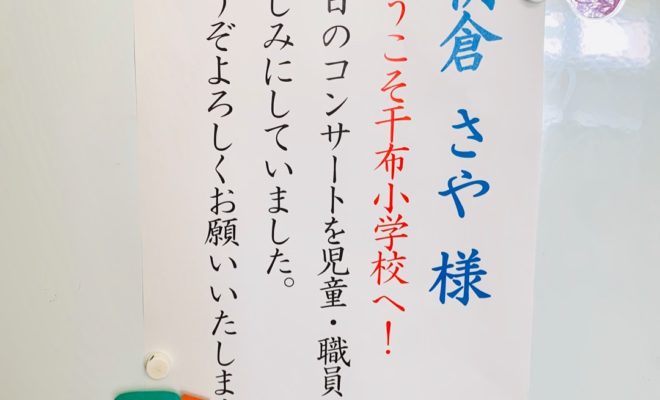 倉 さや 様
うこそ干布小学校へ！
日のコンサートを児童・職員
しみにしていました。
うぞよろしくお願いいたしま